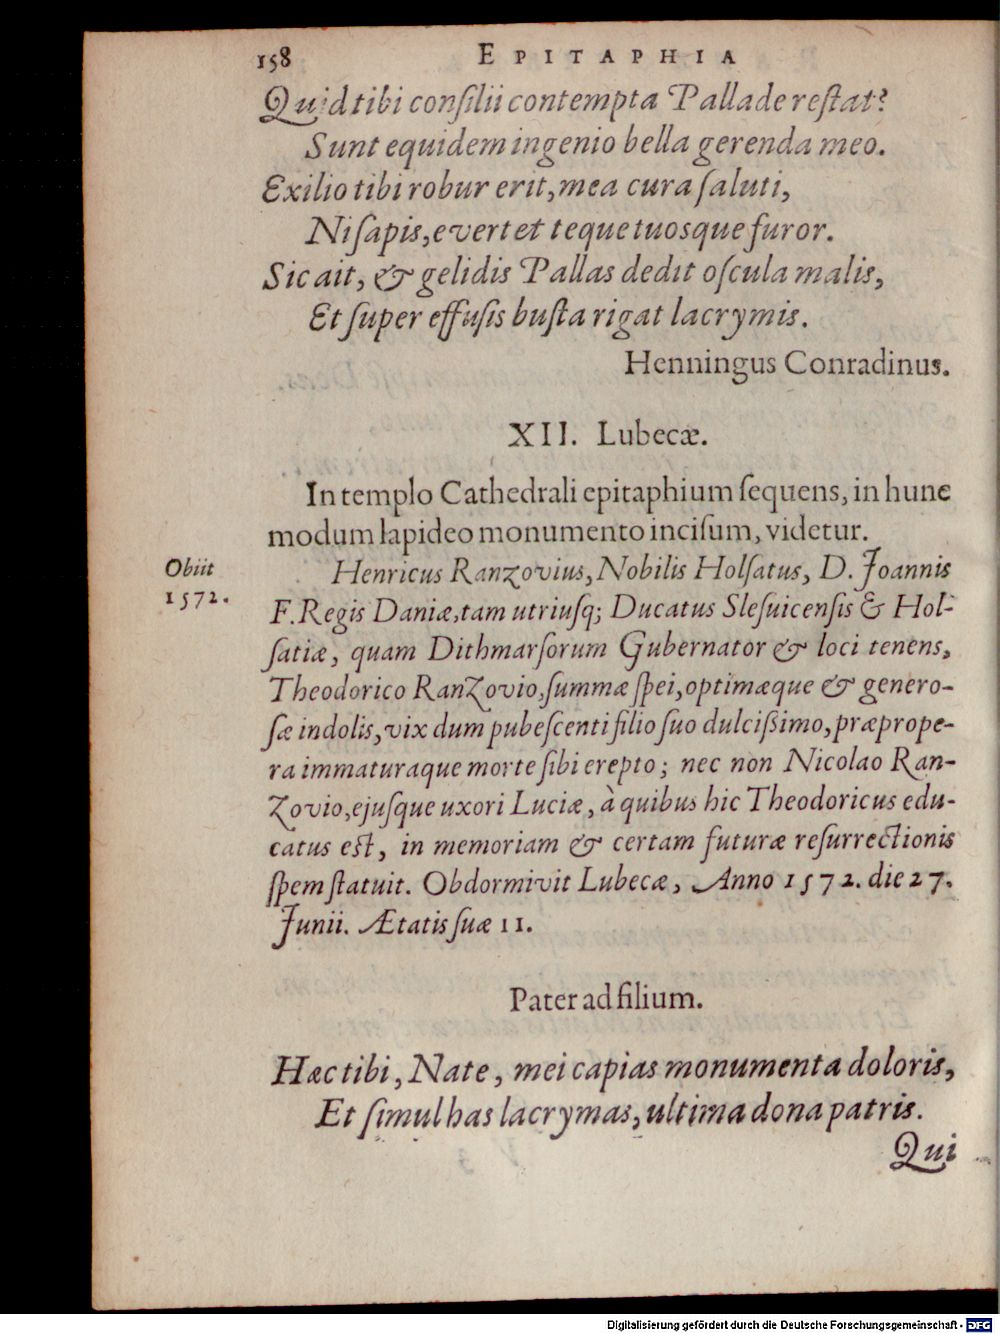 158 EPITAPHIA
Quid tibi consilii contempta Pallade restat?
Sunt equidem ingenio bella gerenda meo.
Exilio tibi robur erit, mea cura saluti,
Ni sapis, evertet teque tuosque furor.
Sic ait, & gelidis Pallas dedit oscula malis,
Et super effusis busta rigat lacrymis.
Henningus Conradinus.
XII. Lubecæ.
In templo Cathedrali epitaphium sequens, in hunc
modum lapideo monumento incisum, videtur.
Obiit
1572.
Henricus Ranzovius, Nobilis Holsatus, D. Joannis
F. Regis Daniæ, tam utriusq; Ducatus Slesuicensis & Hol-
satiæ, quam Dithmarsorum Gubernator & loci tenens,
Theodorico Ranzovio, summæ spei, optimæque & genero-
sæ indolis, vix dum pubescenti filio suo dulcißimo, præprope-
ra immaturaque morte sibi erepto; nec non Nicolao Ran-
zovio, ejusque uxori Luciæ, à quibus hic Theodoricus edu-
catus est, in memoriam & certam futuræ resurrectionis
spem statuit. Obdormivit Lubecæ, Anno 1572. die 27.
Junii. Ætatis suæ 11.
Pater ad filium.
Hæc tibi, Nate, mei capias monumenta doloris,
Et simul has lacrymas, ultima dona patris.
Qui
Digitalisierung gefördert durch die Deutsche Forschungsgemeinschaft - DFG